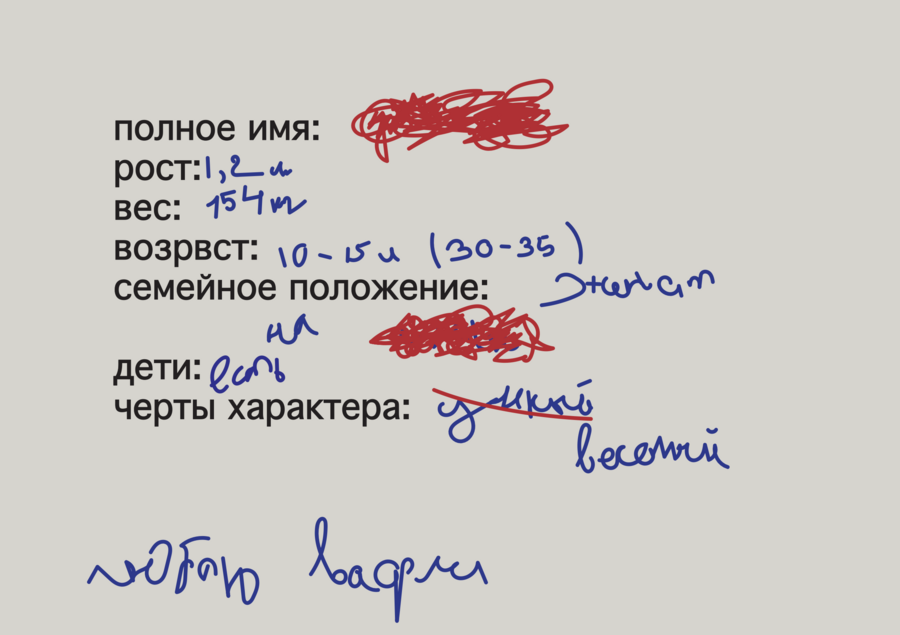 полное имя:
рост: 1,2 м
вес: 154 т
возрвст: 10-15 л (30-35)
семейное положение: женат
на
дети: есть
черты характера: умный
веселый
люблю вафли